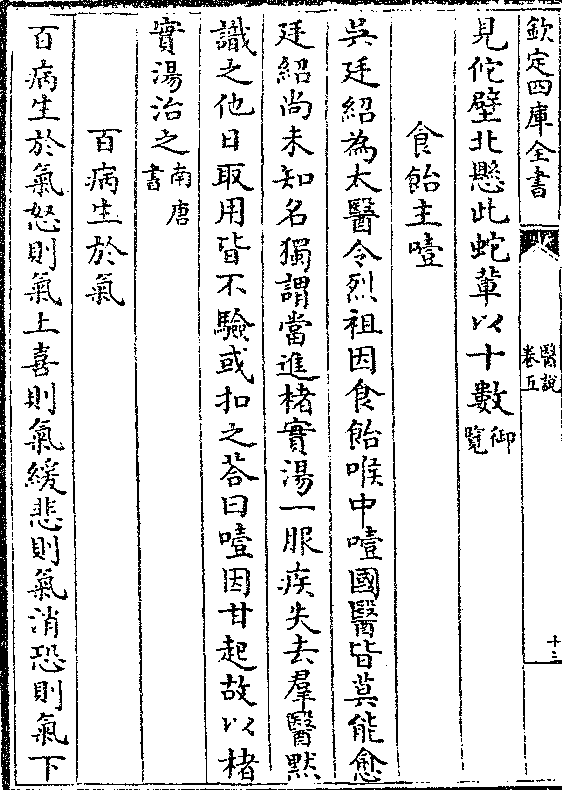 欽定四庫全書
醫說
卷五
十三
見佗壁北懸此蛇輩以十數御
覽
食飴主噎
吳廷紹為太醫令烈祖因食飴喉中噎國醫皆莫能愈
廷紹尚未知名獨謂當進楮實湯一服疾失去羣醫黙
識之他日取用皆不驗或扣之荅曰噎因甘起故以楮
實湯治之南唐
書
百病生於氣
百病生於氣怒則氣上喜則氣緩悲則氣消恐則氣下